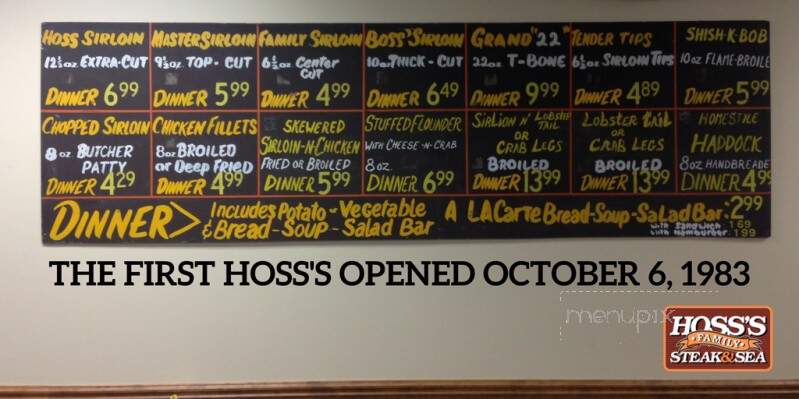 HOSS SIRLOIN
12½ oz. EXTRA-CUT
DINNER 6 99
MASTER SIRLOIN
9½ oz. TOP - CUT
DINNER 5 99
FAMILY SIRLOIN
6½ oz Center CUT
DINNER 4 99
BOSS' SIRLOIN
10 oz. THICK - CUT
DINNER 6 49
GRAND "22"
22 oz T-BONE
DINNER 9 99
TENDER TIPS
6½ oz SIRLOIN TIPS
DINNER 4 89
SHISH-K-BOB
10 oz FLAME-BROILE
DINNER 5 99
CHOPPED SIRLOIN
8 oz BUTCHER
PATTY
DINNER 4 29
CHICKEN FILLETS
8 oz BROILED
or Deep FRIED
DINNER 4 99
SKEWERED
SIRLOIN-N-CHICKEN
FRIED OR BROILED
DINNER 5 99
STUFFED FLOUNDER
WITH CHEESE-N-CRAB
8 oz.
DINNER 6 99
SIRLION N' LOBSTER TAIL
OR
CRAB LEGS
BROILED
DINNER 13 99
LOBSTER TAIL
OR
CRAB LEGS
BROILED
DINNER 13 99
HOMESTYLE
HADDOCK
8 oz HANDBREADE
DINNER 4 99
DINNER> Includes Potato - Vegetable
& Bread - Soup - Salad Bar
A LA CARTE Bread-Soup-SaLad Bar: 2 99
with Sandwich 1 69
with Hamburger: 1 99
THE FIRST HOSS'S OPENED OCTOBER 6, 1983
menupix
HOSS'S
FAMILY
STEAK & SEA